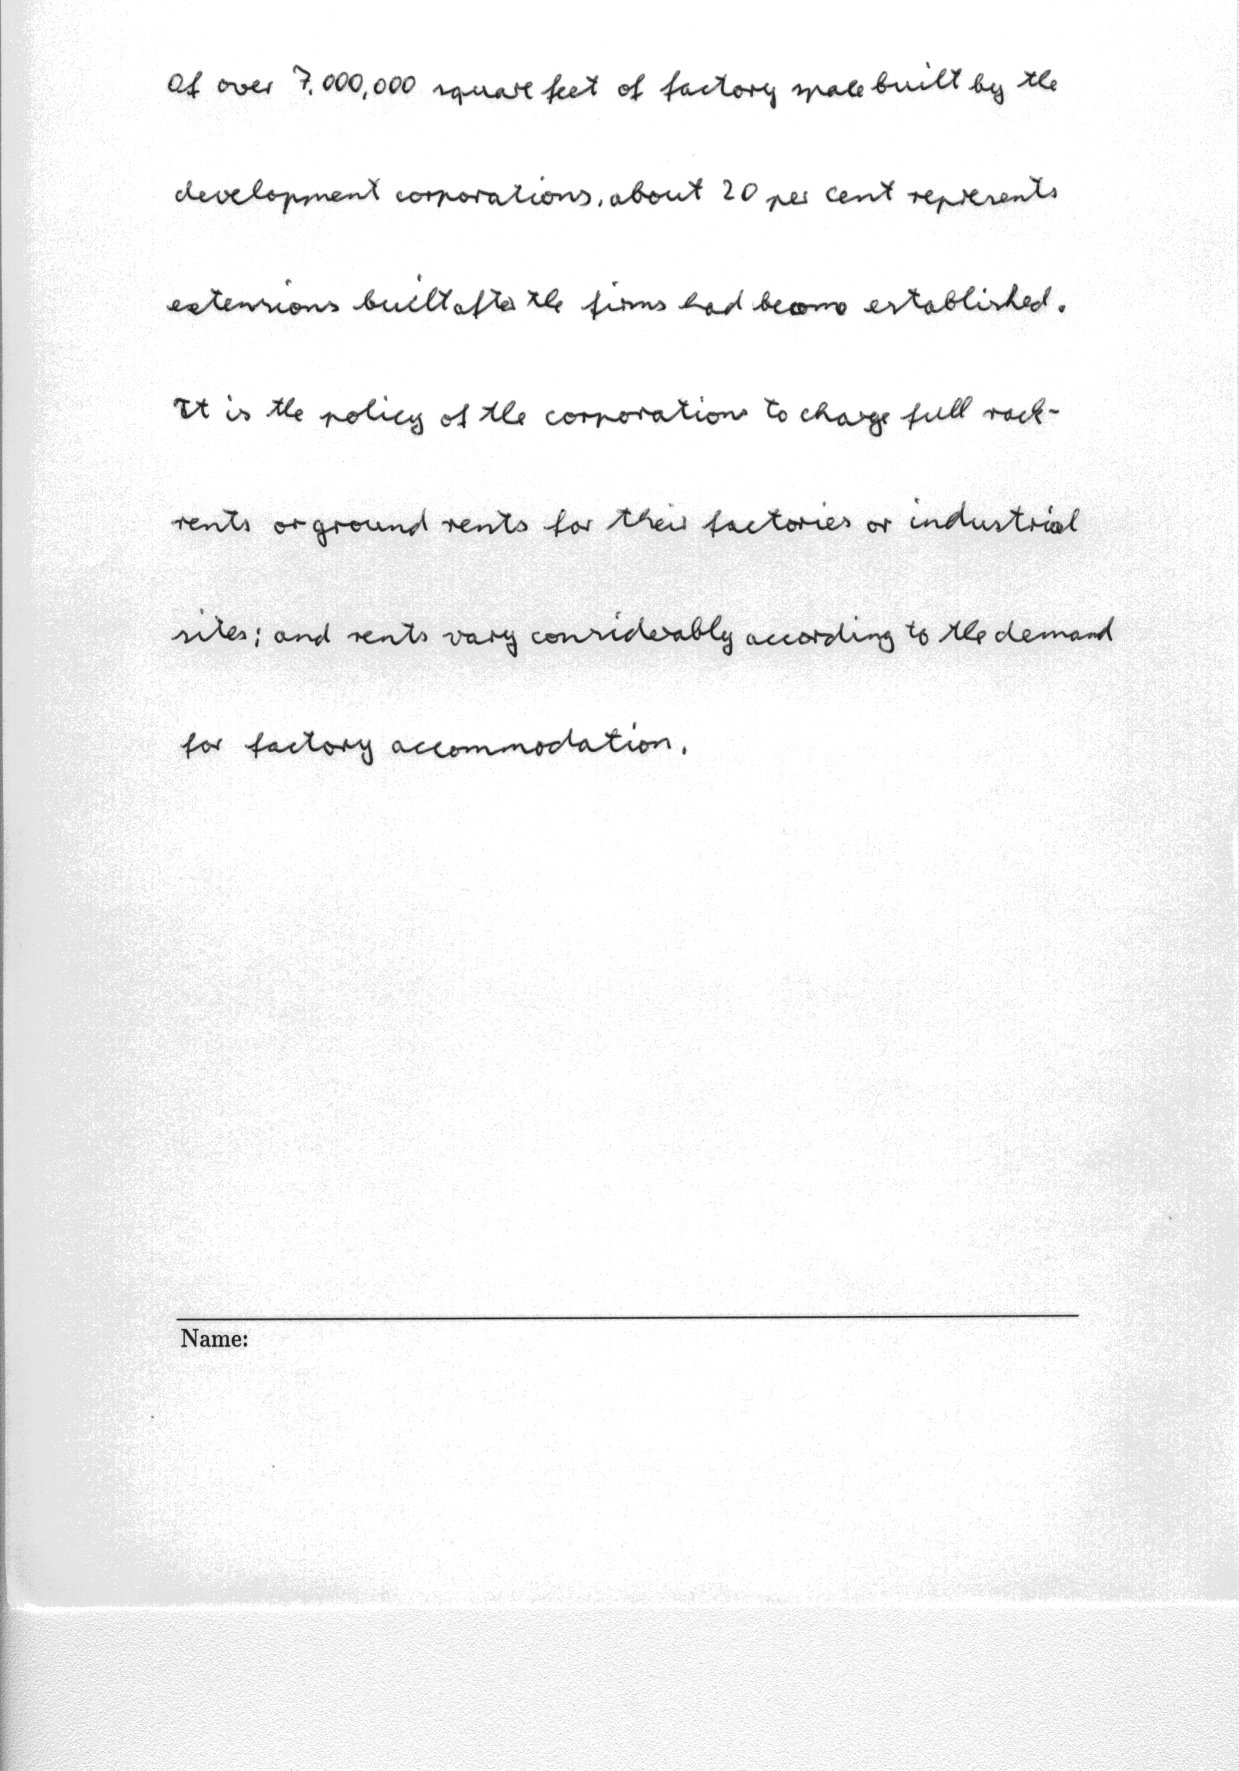 Of over 7,000,000 square feet of factory space built by the
development corporations, about 20 per cent represents
extensions built after the firms had become established.
It is the policy of the corporations to charge full rack-
rents or ground rents for their factories or industrial
sites; and rents vary considerably according to the demand
for factory accommodation.
Name: